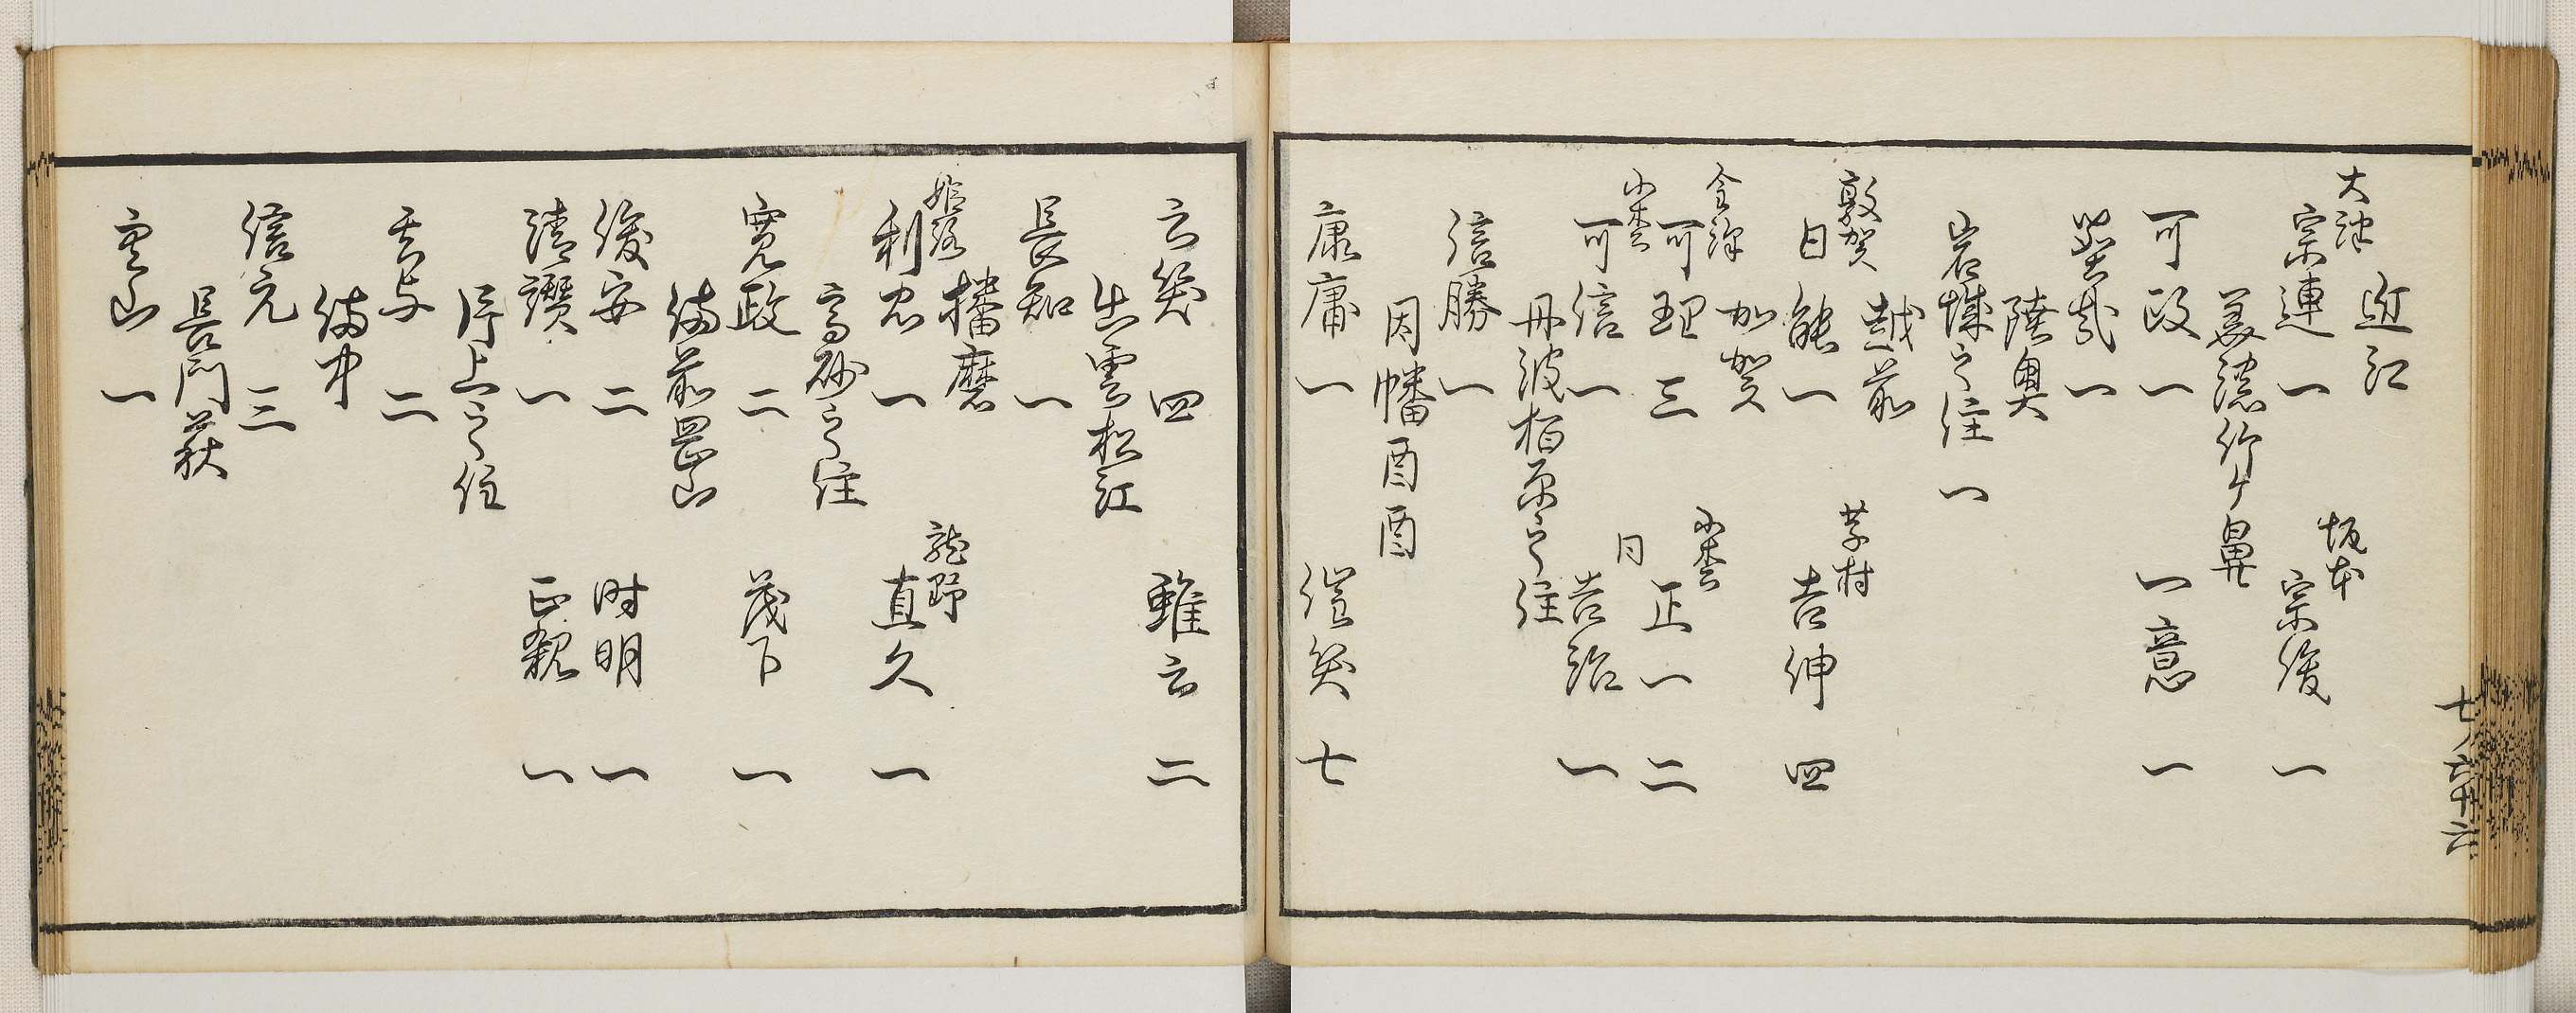 近江
大津 宗連 一 坂本 宗俊 一
美濃竹ヶ鼻
可政 一 一意 一
陸奥
岩城之住 一
越前
敦賀 日能 一 吉伸 四
加賀
金沢 可理 三 小松 正一 二
小松 可信 一 同 一
丹波柏原之住
信勝 一
因幡
康庸 一 笑 七
云笑 四 雖云 二
出雲松江
長知 一
播磨
利忠 一 龍野 直久 一
高砂之住
寛政 二 茂下 一
備前岡山
俊安 二 時明 一
清讃 一 正親 一
片上之住
二
備中
信元 三
長門萩
一